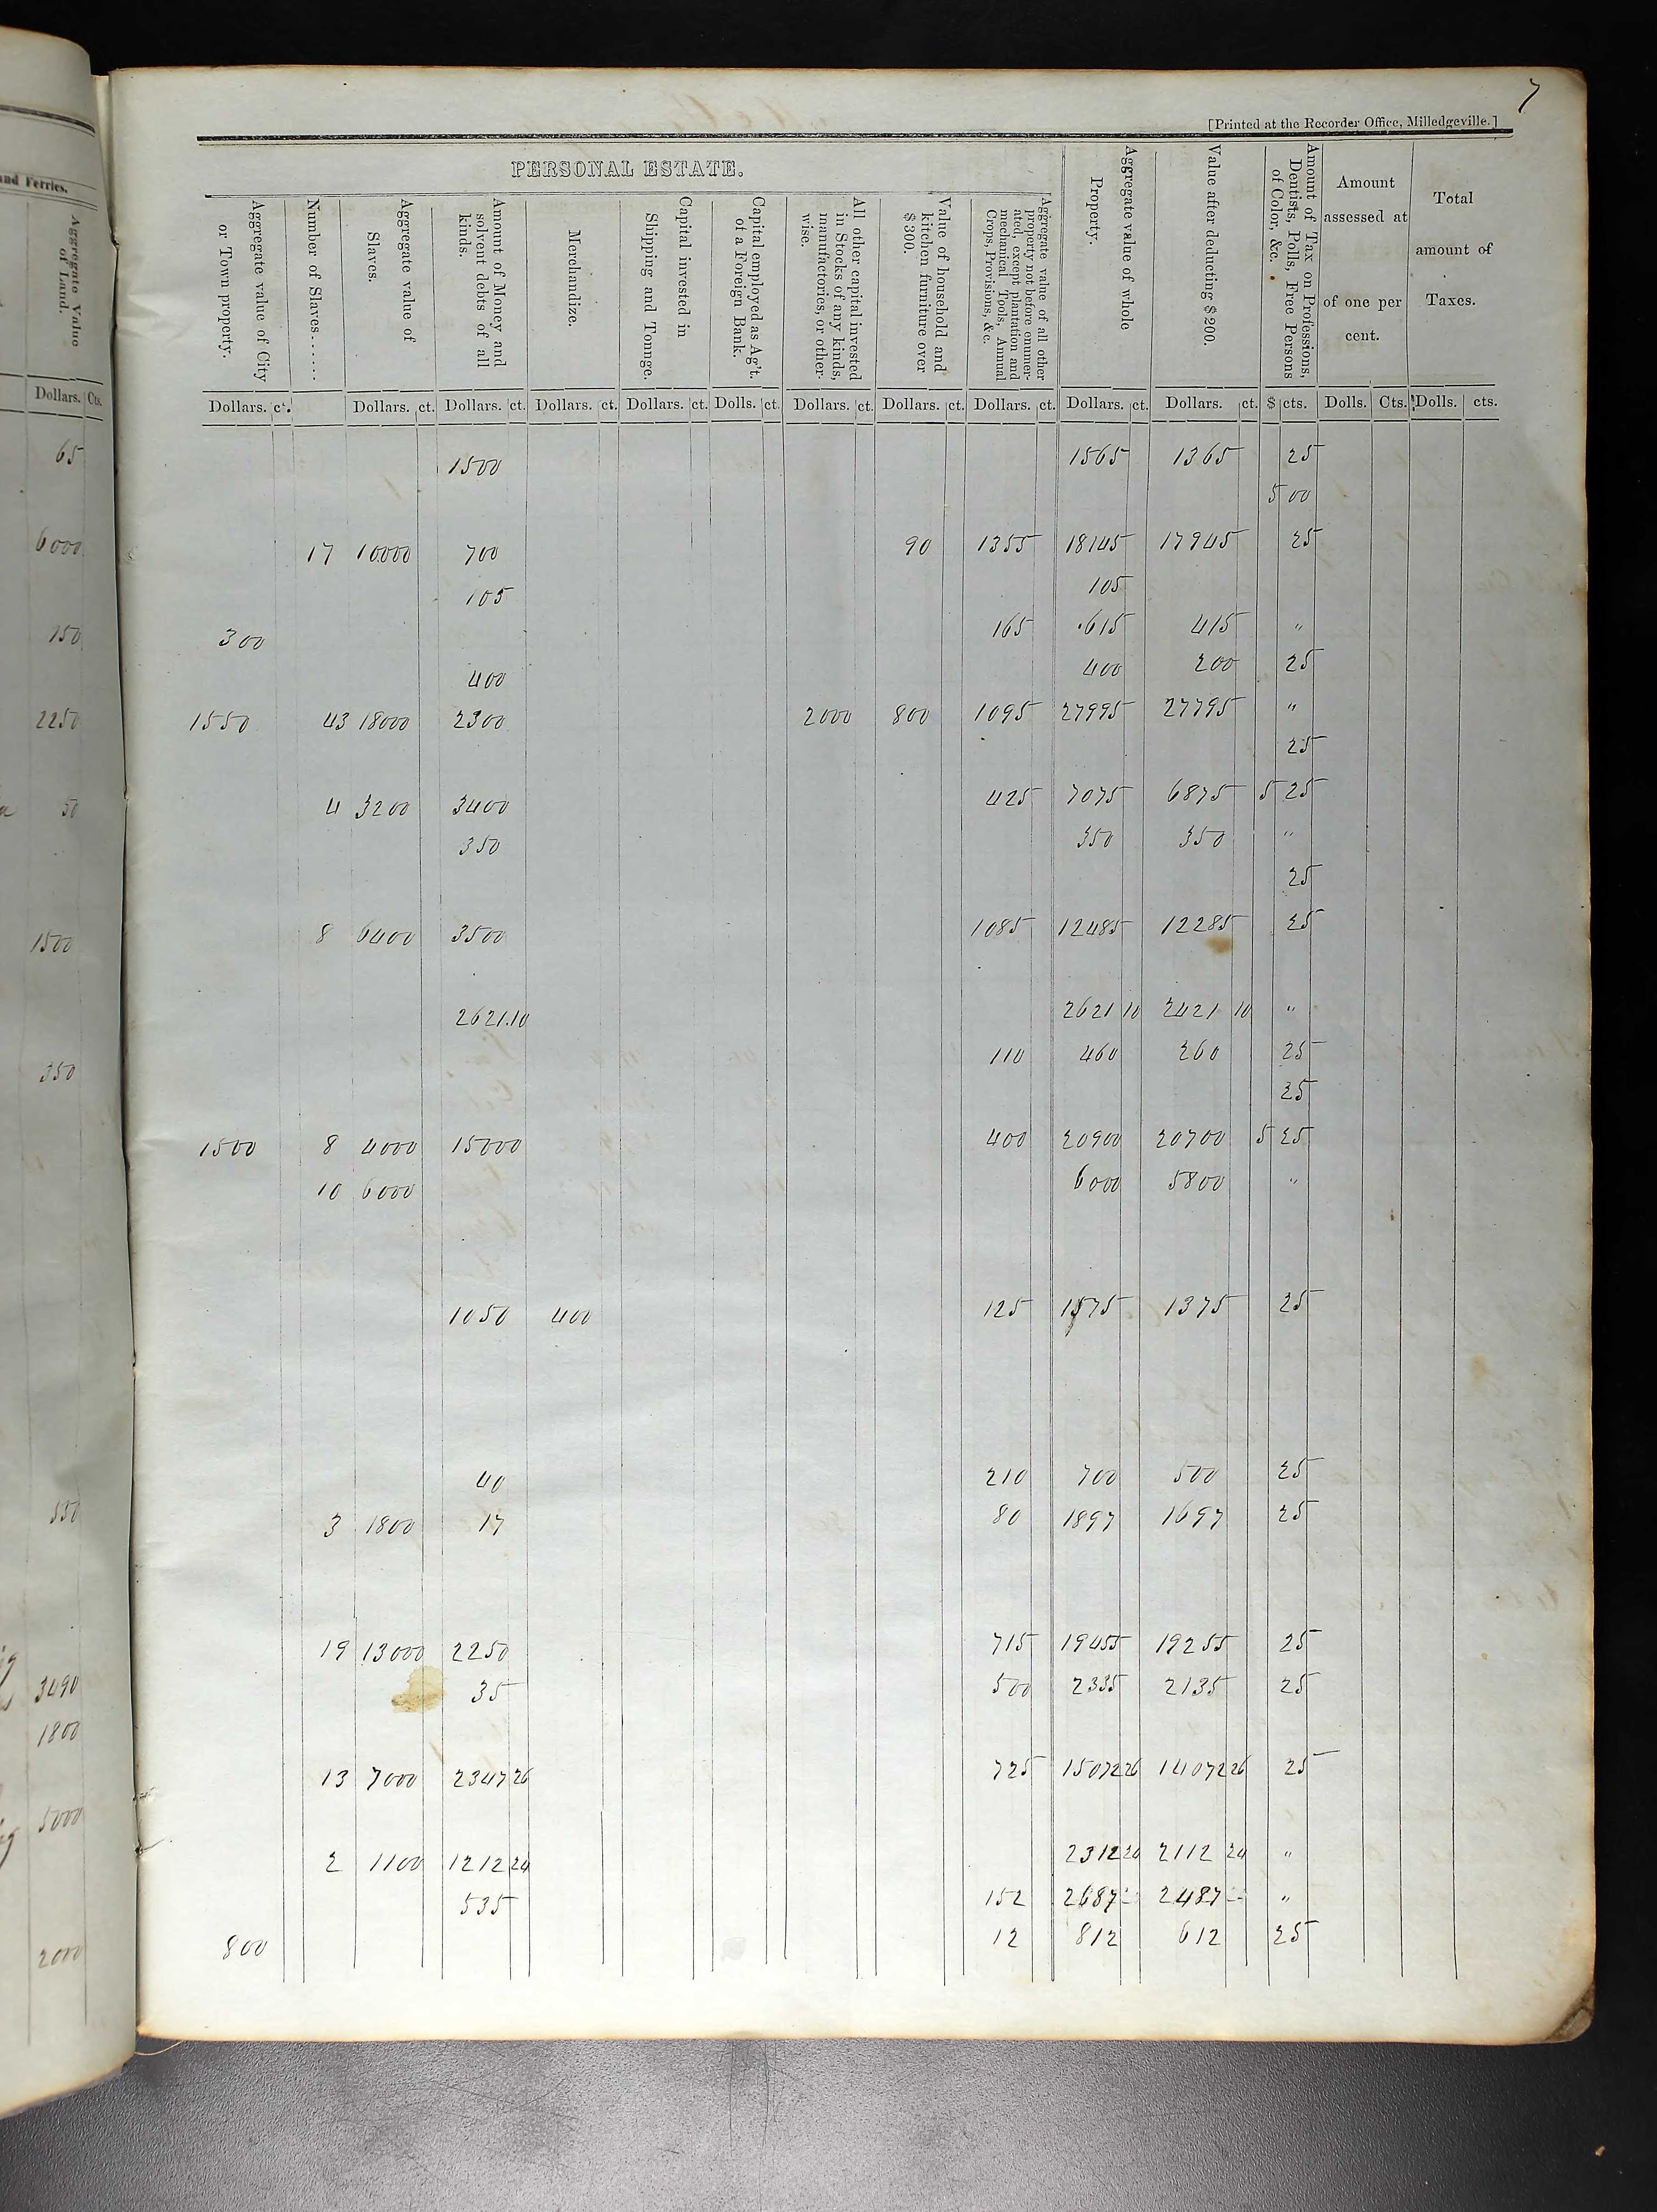 7
[Printed at the Recorder Office, Milledgeville.]
and Ferries.
Aggregate Value of Land.
Dollars. Cts.
PERSONAL ESTATE.
Aggregate value of City or Town property.
Number of Slaves......
Aggregate value of Slaves.
Amount of Money and solvent debts of all kinds.
Merchandize.
Capital invested in Shipping and Tonnge.
Capital employed as Ag't. of a Foreign Bank.
All other capital invested in Stocks of any kinds, manufactories, or otherwise.
Value of household and kitchen furniture over $300.
Aggregate value of all other property not before enumerated, except plantation and mechanical Tools, Annual Crops, Provisions, &c.
Aggregate value of whole Property.
Value after deducting $200.
Amount of Tax on Professions, Dentists, Polls, Free Persons of Color, &c.
Amount assessed at of one per cent.
Total amount of Taxes.
Dollars. ct. Dollars. ct. Dollars. ct. Dollars. ct. Dollars. ct. Dolls. ct. Dollars. ct. Dollars. ct. Dollars. ct. Dollars. ct. Dollars. ct. $ cts. Dolls. Cts. Dolls. cts.
65 1500 1565 1365 25
5 00
6000 17 10000 700 90 1355 18145 17945 25
105 105
150 300 165 615 415 "
400 400 200 25
2250 1550 43 18000 2300 2000 800 1095 27995 27795 "
25
50 4 3200 3400 425 7075 6875 5 25
350 350 350 "
25
1500 8 6400 3500 1085 12485 12285 25
2621.10 2621 10 2421 10 "
350 110 460 260 25
25
1500 8 4000 15000 400 20900 20700 5 25
10 6000 6000 5800 "
1050 400 125 1575 1375 25
40 210 700 500 25
3 1800 17 80 1897 1697 25
19 13000 2250 715 19455 19255 25
1800 35 500 2335 2135 25
5000 13 7000 2347 26 725 15072 26 14072 26 25
2 1100 1212 24 2312 24 2112 24 "
2000 535 152 2687 2487 "
800 12 812 612 25
3490